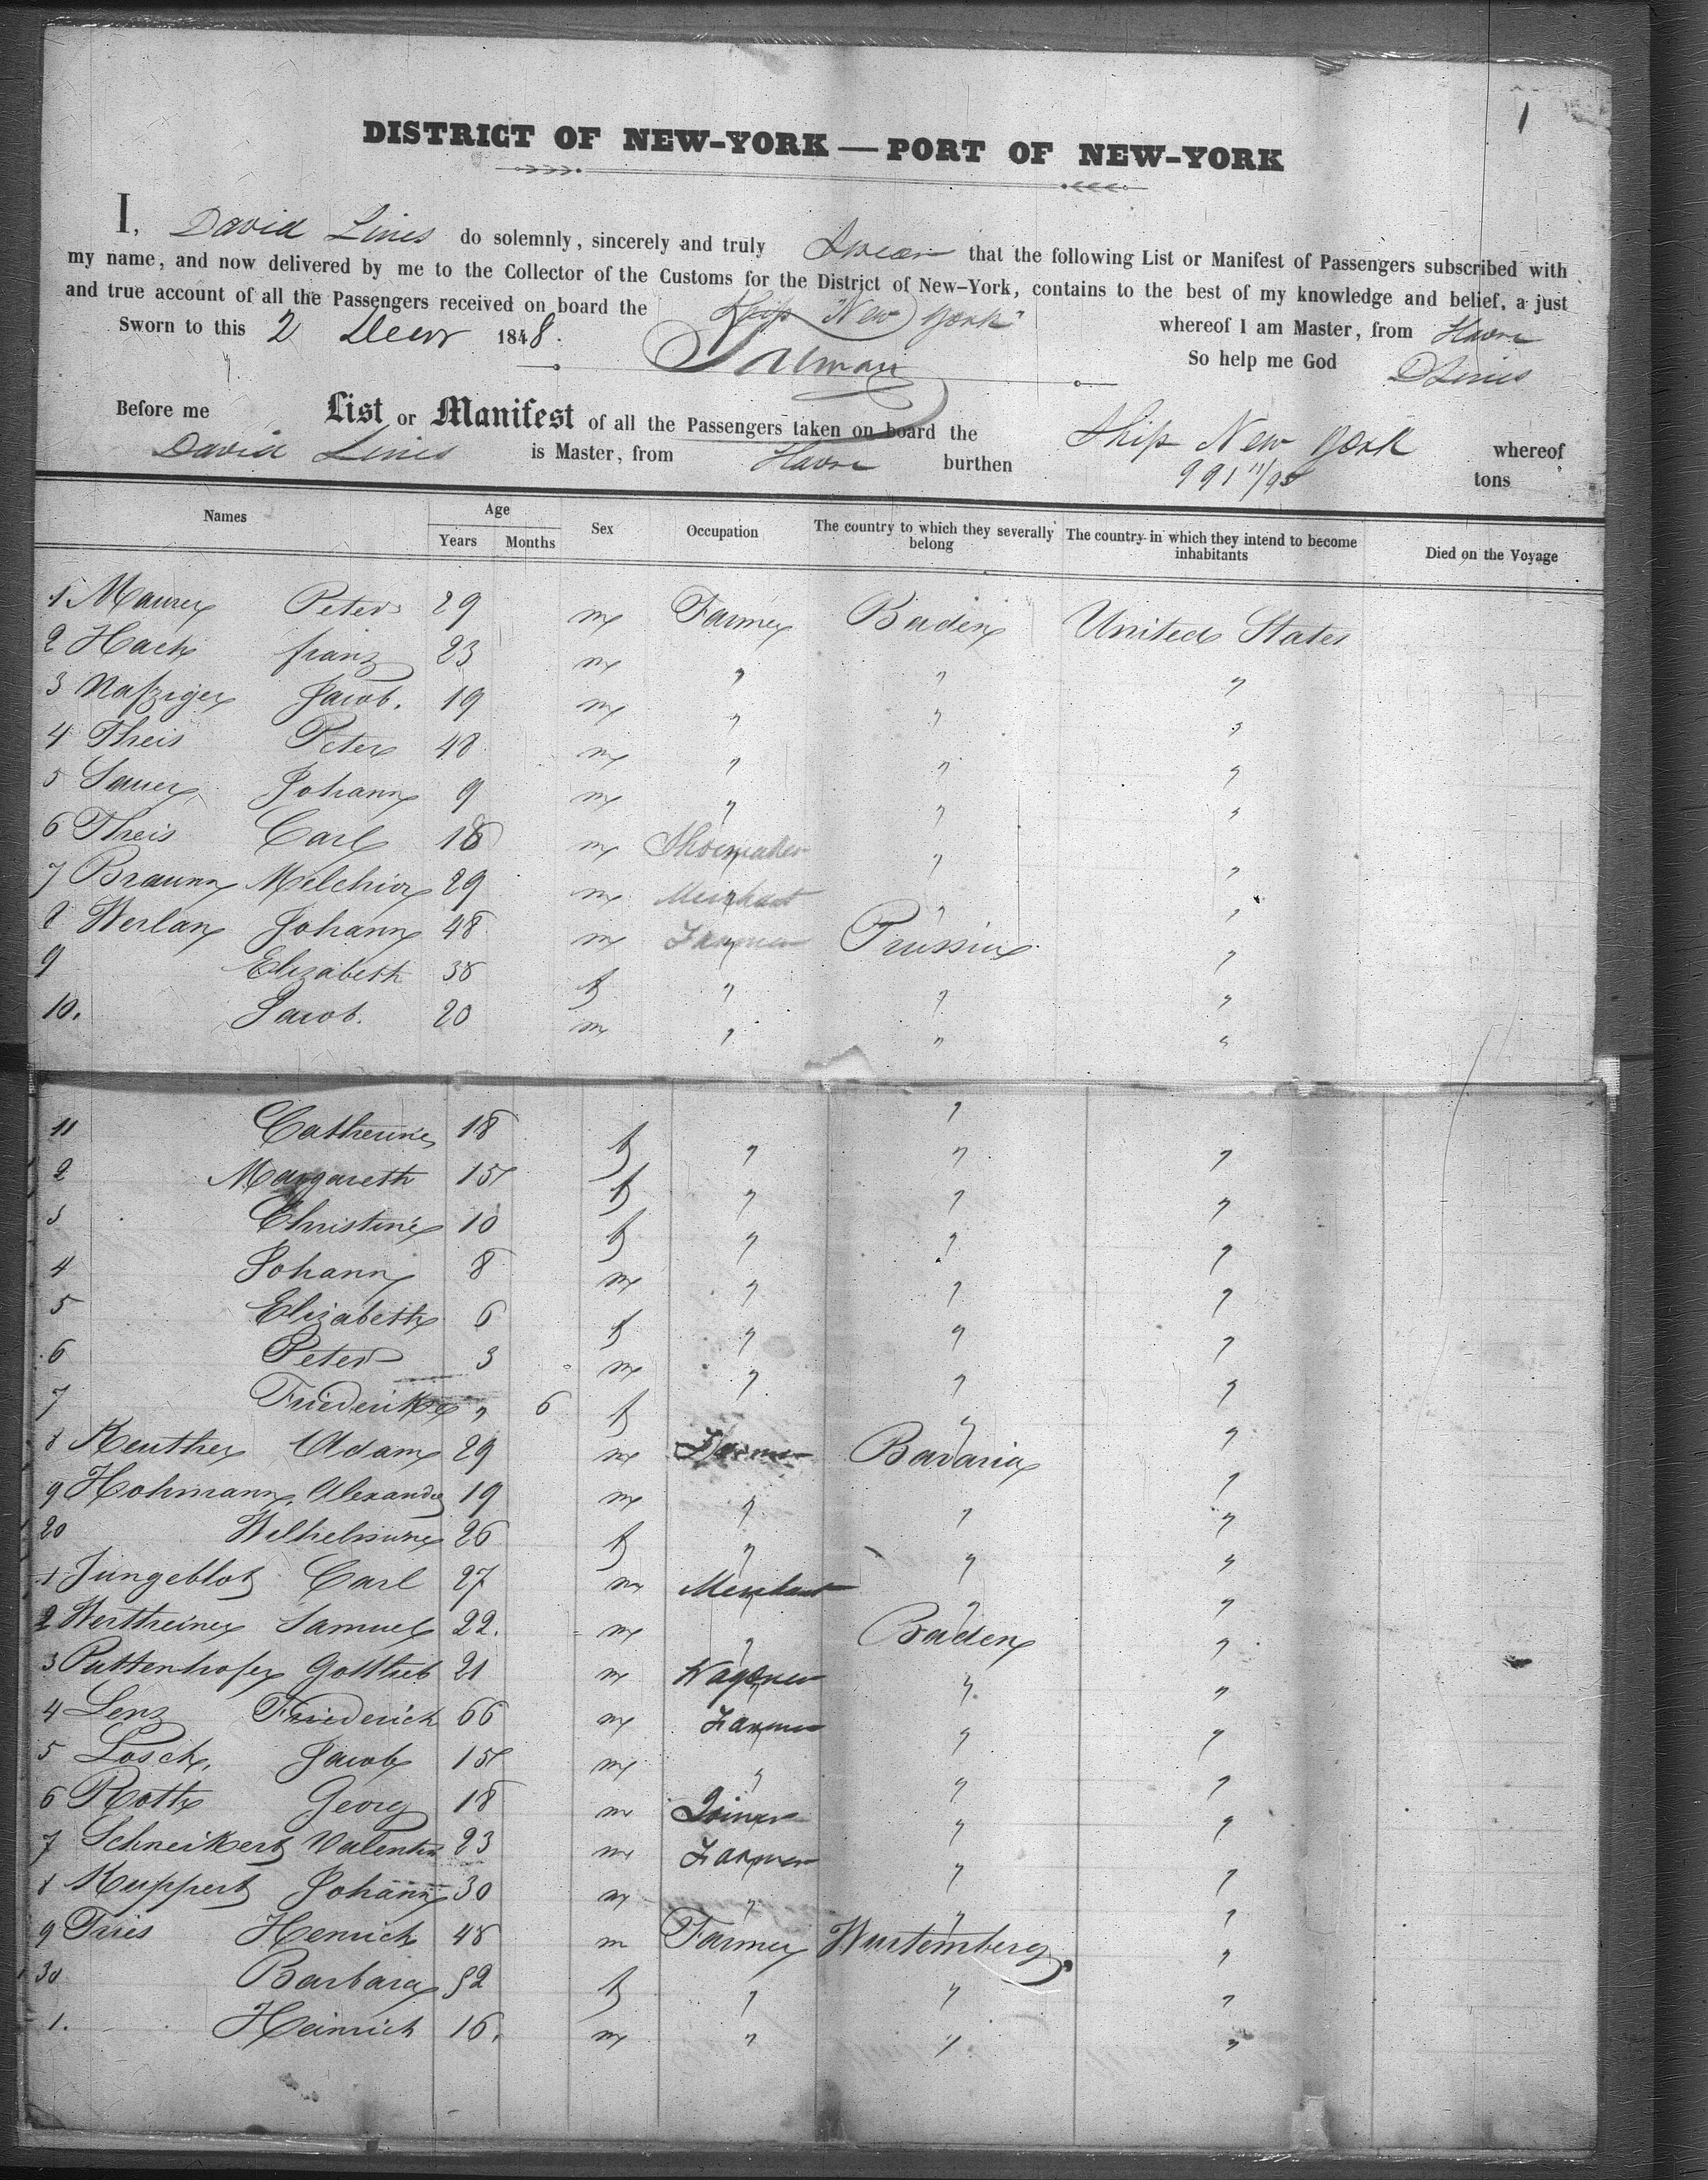 1
DISTRICT OF NEW-YORK — PORT OF NEW-YORK
I, David Lines do solemnly, sincerely and truly Swear that the following List or Manifest of Passengers subscribed with
my name, and now delivered by me to the Collector of the Customs for the District of New-York, contains to the best of my knowledge and belief, a just
and true account of all the Passengers received on board the Ship "New York" whereof I am Master, from Havre
Sworn to this 2 Decr 1848. So help me God DLines
Before me
List or Manifest of all the Passengers taken on board the Ship New York whereof
David Lines is Master, from Havre burthen 991 11/95 tons
Names Age Sex Occupation The country to which they severally belong The country in which they intend to become inhabitants Died on the Voyage
Years Months
1 Maurer Peter 29 m Farmer Baden United States
2 Hach franz 23 m " " "
3 Nafziger Jacob. 19 m " " "
4 Theis Peter 48 m " " "
5 Sauer Johann 9 m " " "
6 Theis Carl 18 m Shoemaker " "
7 Braunn Melchior 29 m Merchant " "
8 Werlan Johann 48 m Farmer Prussia "
9 Elizabeth 38 f " " "
10. Jacob. 20 m " " "
11 Catherine 18 f " " "
2 Margareth 15 f " " "
3 Christine 10 f " " "
4 Johann 8 m " " "
5 Elizabeth 6 f " " "
6 Peter 3 m " " "
7 Friederike " 6 f " "
8 Reuther Adam 29 m Farmer Bavaria "
9 Hohmann, Alexander 19 m " " "
20 Wilhelmine 26 f " " "
1 Jungeblot Carl 27 m Merchant " "
2 Wertheimer Samuel 22. m " Baden "
3 Puttenhofer Gottlieb 21 m Wagoner " "
4 Lenz Friederich 66 m Farmer " "
5 Losch, Jacob 15 m " " "
6 Roth Georg 18 m Joiner " "
7 Schneikert Valentin 23 m Farmer " "
8 Ruppert Johann 30 m " " "
9 Fries Henrich 48 m Farmer Wurtemberg "
30 Barbara 52 f " " "
1. Heinrich 16. m " " "